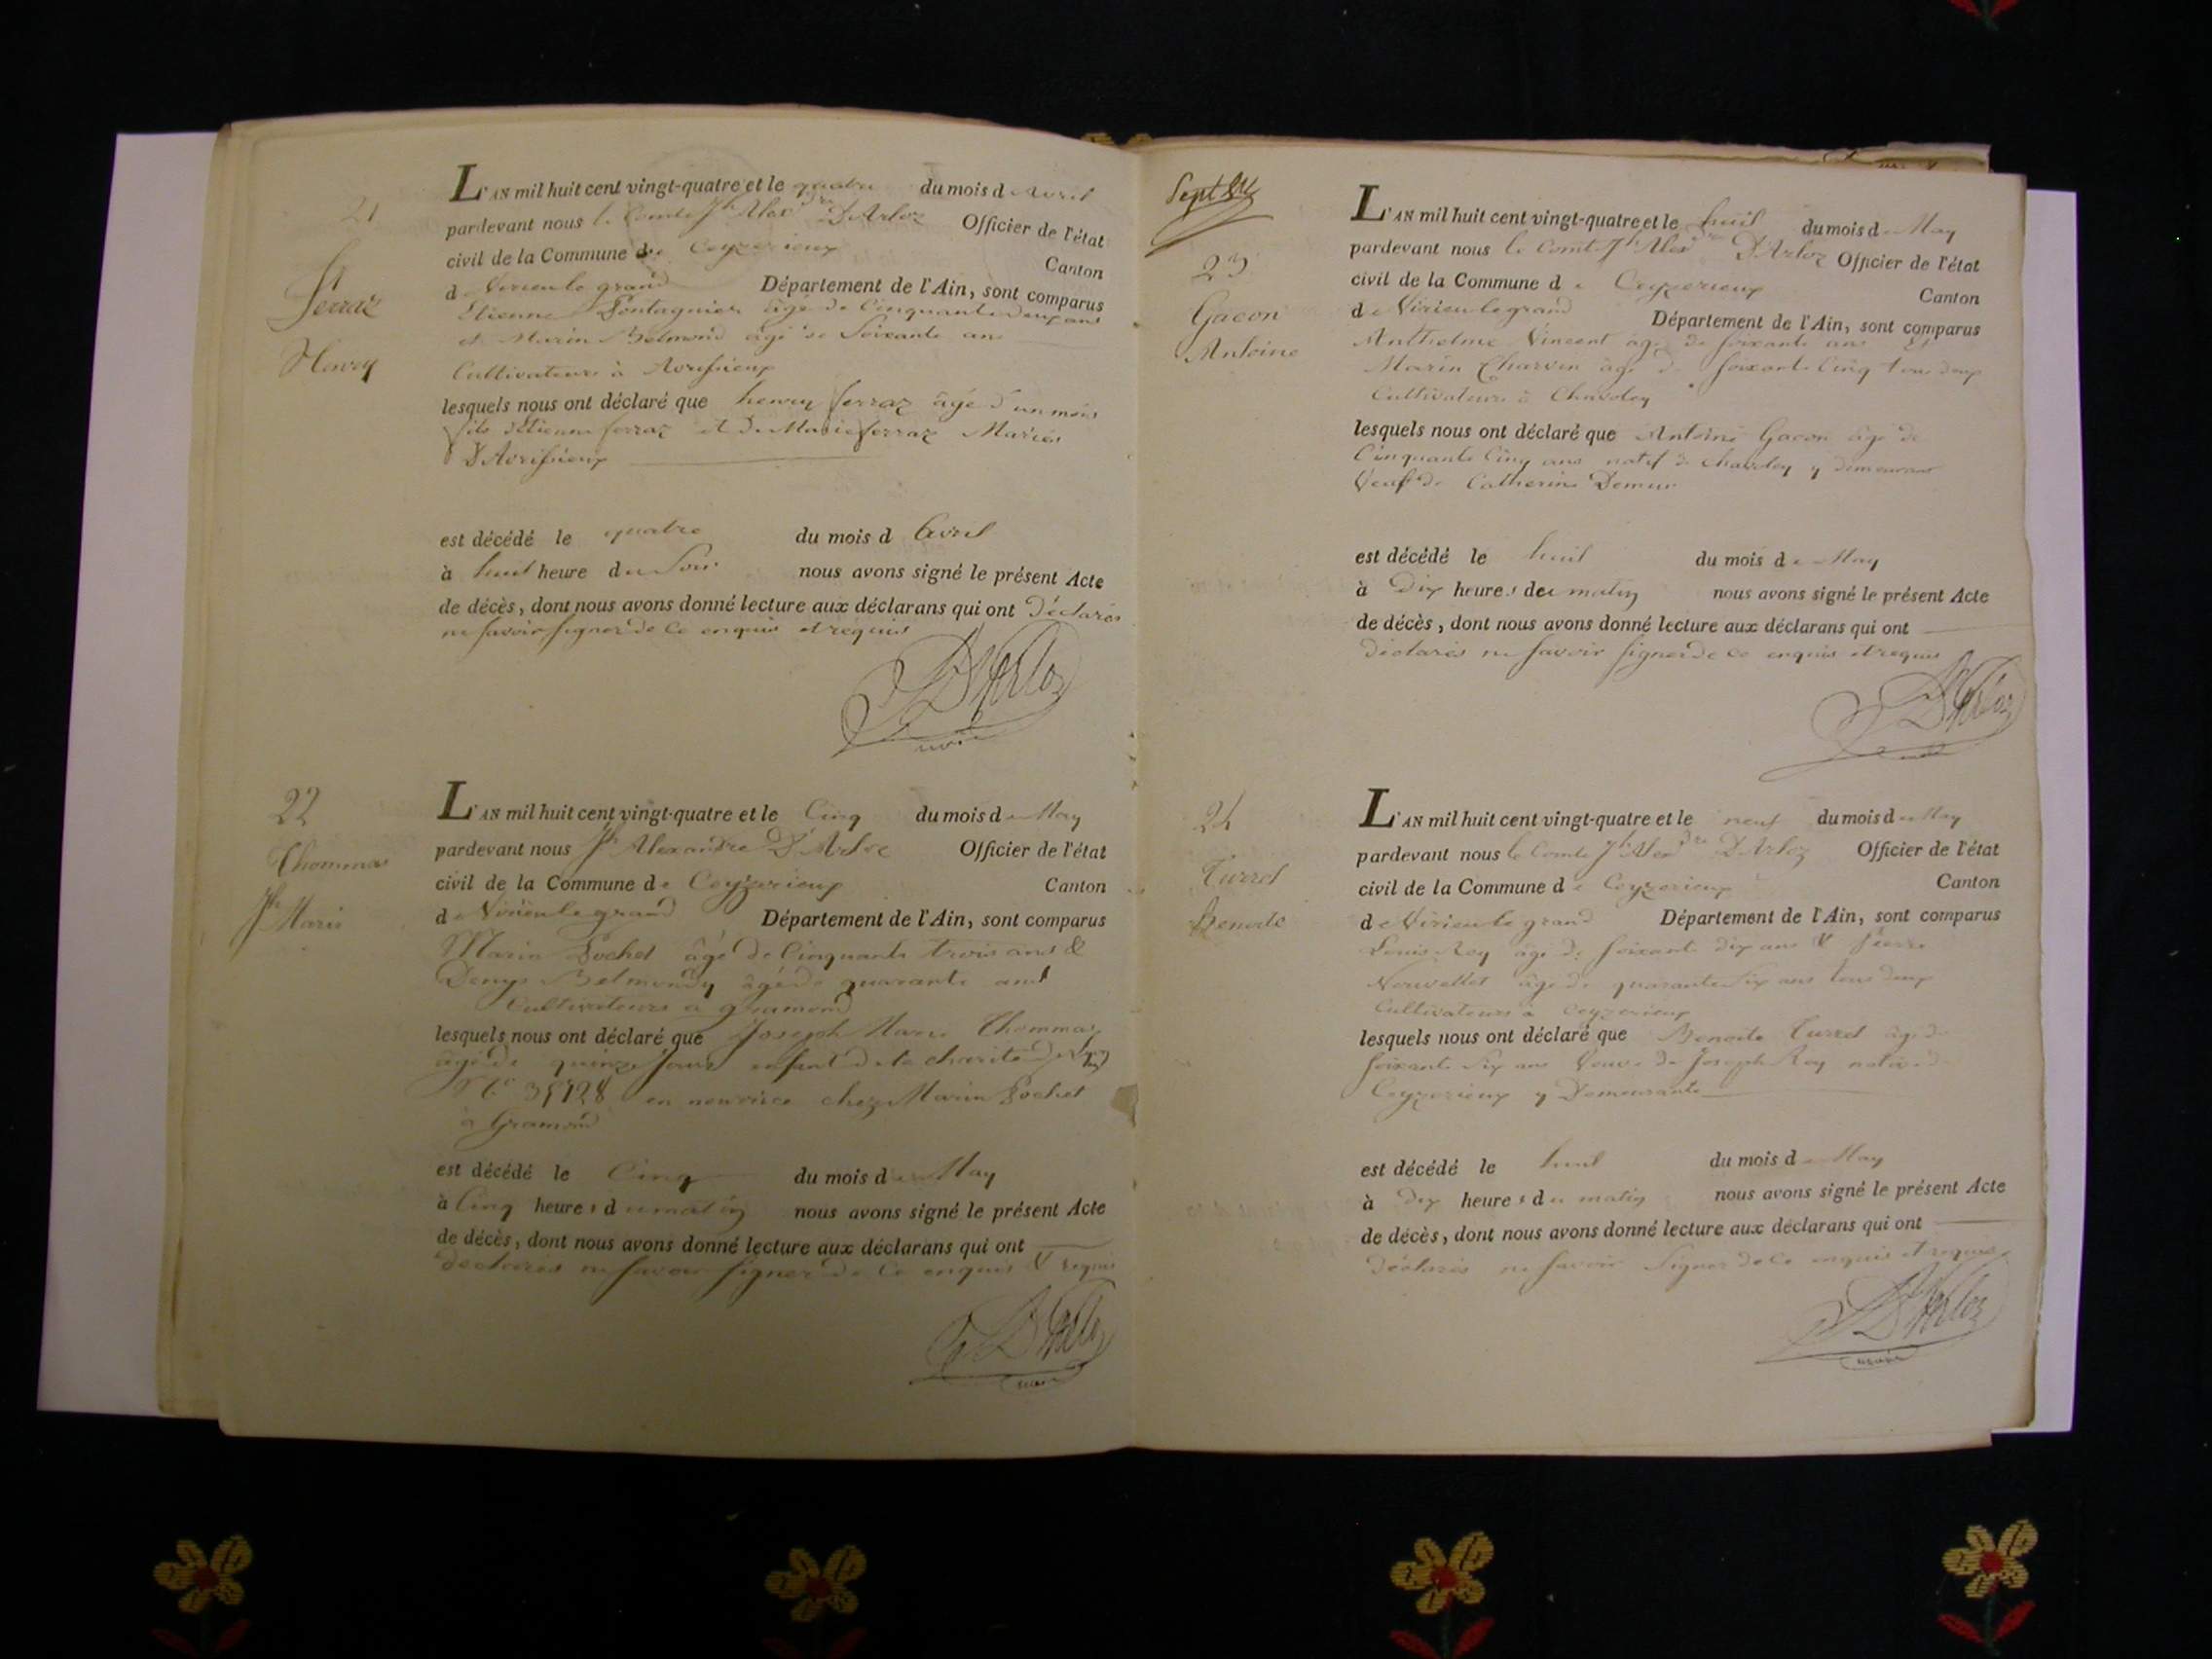 21
Ferraz
Henry
L'AN mil huit cent vingt-quatre et le quatre du mois d Avril
pardevant nous le Comte Jh Alexdre D'Arloz Officier de l'état
civil de la Commune de Ceyzerieux Canton
de Virieu le grand Département de l'Ain, sont comparus
Etienne Pontagnier âgé de Cinquante deux ans
et Marin Belmond âgé de Soixante ans
Cultivateurs à Avrissieux
lesquels nous ont déclaré que henry ferraz âgé d'un mois
fils d'Etienne ferraz et de Marie ferraz Mariés
D'Avrissieux
est décédé le quatre du mois d Avril
à huit heure du Soir nous avons signé le présent Acte
de décès, dont nous avons donné lecture aux déclarans qui ont Déclarés
ne savoir signer de ce enquis et requis
D'Arloz
22
Thommas
Jh Marie
L'AN mil huit cent vingt-quatre et le Cinq du mois de May
pardevant nous Jh Alexandre D'Arloz Officier de l'état
civil de la Commune de Ceyzerieux Canton
de Virieu le grand Département de l'Ain, sont comparus
Marin Pochet âgé de Cinquante trois ans &
Denys Belmondy âgé de quarante ans
Cultivateurs a gramond
lesquels nous ont déclaré que Joseph Marie Thommas
âgé de quinze jours enfant de la charité de
en nourrice chez Marin Pochet
à Gramond
est décédé le Cinq du mois de May
à Cinq heures du matin nous avons signé le présent Acte
de décès, dont nous avons donné lecture aux déclarans qui ont
déclarés ne savoir signer de ce enquis & requis
D'Arloz
Sept
23
Gacon
Antoine
L'AN mil huit cent vingt-quatre et le huit du mois de May
pardevant nous le Comte Jh Alexdre D'Arloz Officier de l'état
civil de la Commune de Ceyzerieux Canton
de Virieu le grand Département de l'Ain, sont comparus
Anthelme Vincent âgé de soixante ans Et
Marin Charvin âgé de soixante Cinq tous deux
Cultivateurs à Chavoley
lesquels nous ont déclaré que Antoine Gacon âgé de
Cinquante Cinq ans natif de Chavoley y demeurant
Veuf de Catherine Demeur
est décédé le huit du mois de May
à Dix heures du matin nous avons signé le présent Acte
de décès, dont nous avons donné lecture aux déclarans qui ont
déclarés ne savoir signer de ce enquis et requis
D'Arloz
24
Turrel
Benoite
L'AN mil huit cent vingt-quatre et le neuf du mois de May
pardevant nous le Comte Jh Alexdre D'Arloz Officier de l'état
civil de la Commune de Ceyzerieux Canton
de Virieu le grand Département de l'Ain, sont comparus
Louis Rey âgé de soixante dix ans & Pierre
Nouvellet âgé de quarante Six ans tous deux
Cultivateurs à Ceyzerieux
lesquels nous ont déclaré que Benoite Turrel âgé de
soixante Six ans Veuve de Joseph Rey native de
Ceyzerieux y Demeurante
est décédé le huit du mois de May
à dix heures du matin nous avons signé le présent Acte
de décès, dont nous avons donné lecture aux déclarans qui ont
déclarés ne savoir Signer de ce enquis et requis
D'Arloz
maire